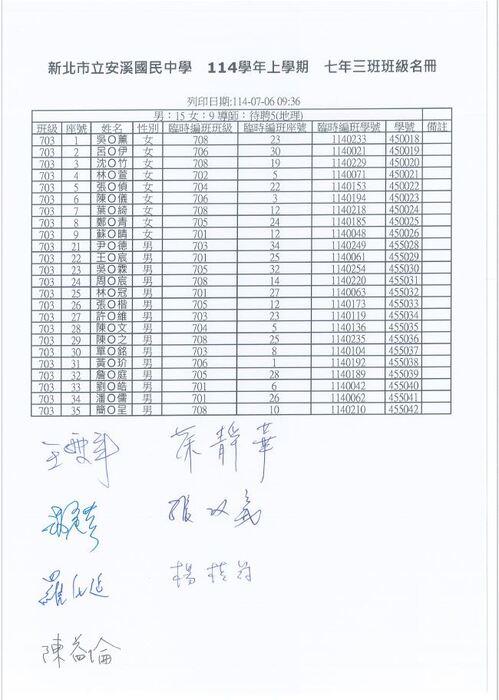 新北市立安溪國民中學 114學年上學期 七年三班班級名冊
列印日期:114-07-06 09:36
男：15 女：9 導師：待聘5(地理)
班級 座號 姓名 性別 臨時編班班級 臨時編班座號 臨時編班學號 學號 備註
703 1 吳O薰 女 708 23 1140233 450018
703 2 呂O伊 女 706 30 1140021 450019
703 3 沈O竹 女 708 19 1140229 450020
703 4 林O萱 女 702 5 1140071 450021
703 5 張O偵 女 704 22 1140153 450022
703 6 陳O儀 女 706 3 1140194 450023
703 7 葉O綺 女 708 12 1140218 450024
703 8 鄭O青 女 705 24 1140185 450025
703 9 蘇O晴 女 701 12 1140048 450026
703 21 尹O德 男 703 34 1140249 455028
703 22 王O宸 男 701 25 1140061 455029
703 23 吳O霖 男 705 32 1140254 455030
703 24 周O宸 男 708 14 1140220 455031
703 25 林O冠 男 701 27 1140063 455032
703 26 張O楷 男 705 12 1140173 455033
703 27 許O維 男 703 23 1140119 455034
703 28 陳O文 男 704 5 1140136 455035
703 29 陳O之 男 708 25 1140235 455036
703 30 單O銘 男 703 8 1140104 455037
703 31 黃O玠 男 706 1 1140192 455038
703 32 詹O庭 男 705 28 1140189 455039
703 33 劉O皓 男 701 6 1140042 455040
703 34 潘O儒 男 701 26 1140062 455041
703 35 簡O呈 男 708 10 1140210 455042
靜華
張
羅
楊
陳益倫